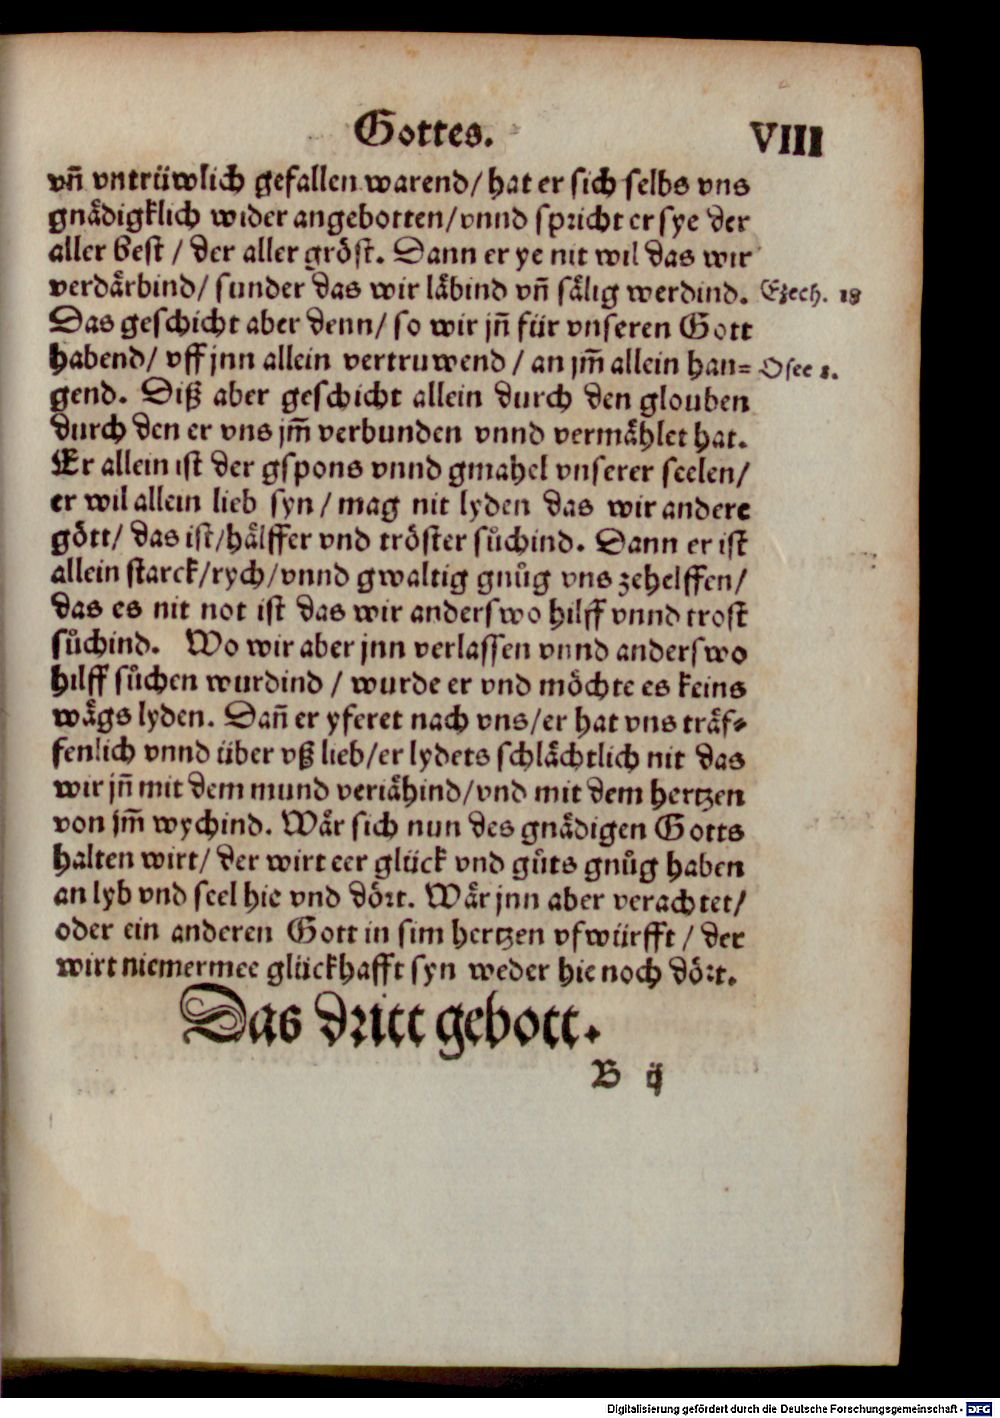 Gottes. VIII
vñ vntrüwlich gefallen warend/ hat er sich selbs vns
gnaͤdigklich wider angebotten/ vnnd spricht er sye der
aller best / der aller groͤst. Dann er ye nit wil das wir
verdaͤrbind/ sunder das wir laͤbind vñ saͤlig werdind. Ezech. 18
Das geschicht aber denn/ so wir jñ für vnseren Gott
habend/ vff jnn allein vertruwend / an jm̃ allein han= Osee 1.
gend. Diß aber geschicht allein durch den glouben
durch den er vns jm̃ verbunden vnnd vermaͤhlet hat.
Er allein ist der gspons vnnd gmahel vnserer seelen/
er wil allein lieb syn / mag nit lyden das wir andere
goͤtt/ das ist/ haͤlffer vnd troͤster suͦchind. Dann er ist
allein starck/ rych/ vnnd gwaltig gnuͦg vns zehelffen/
das es nit not ist das wir anderswo hilff vnnd trost
suͦchind. Wo wir aber jnn verlassen vnnd anderswo
hilff suͦchen wurdind / wurde er vnd moͤchte es keins
waͤgs lyden. Dañ er yferet nach vns/ er hat vns traͤf=
fenlich vnnd über vß lieb/ er lydets schlaͤchtlich nit das
wir jñ mit dem mund veriaͤhind/ vnd mit dem hertzen
von jm̃ wychind. Waͤr sich nun des gnaͤdigen Gotts
halten wirt/ der wirt eer glück vnd guͦts gnuͦg haben
an lyb vnd seel hie vnd doͤrt. Waͤr jnn aber verachtet/
oder ein anderen Gott in sim hertzen vfwürfft / der
wirt niemermee glückhafft syn weder hie noch doͤrt.
Das dritt gebott.
B ij
Digitalisierung gefördert durch die Deutsche Forschungsgemeinschaft - DFG